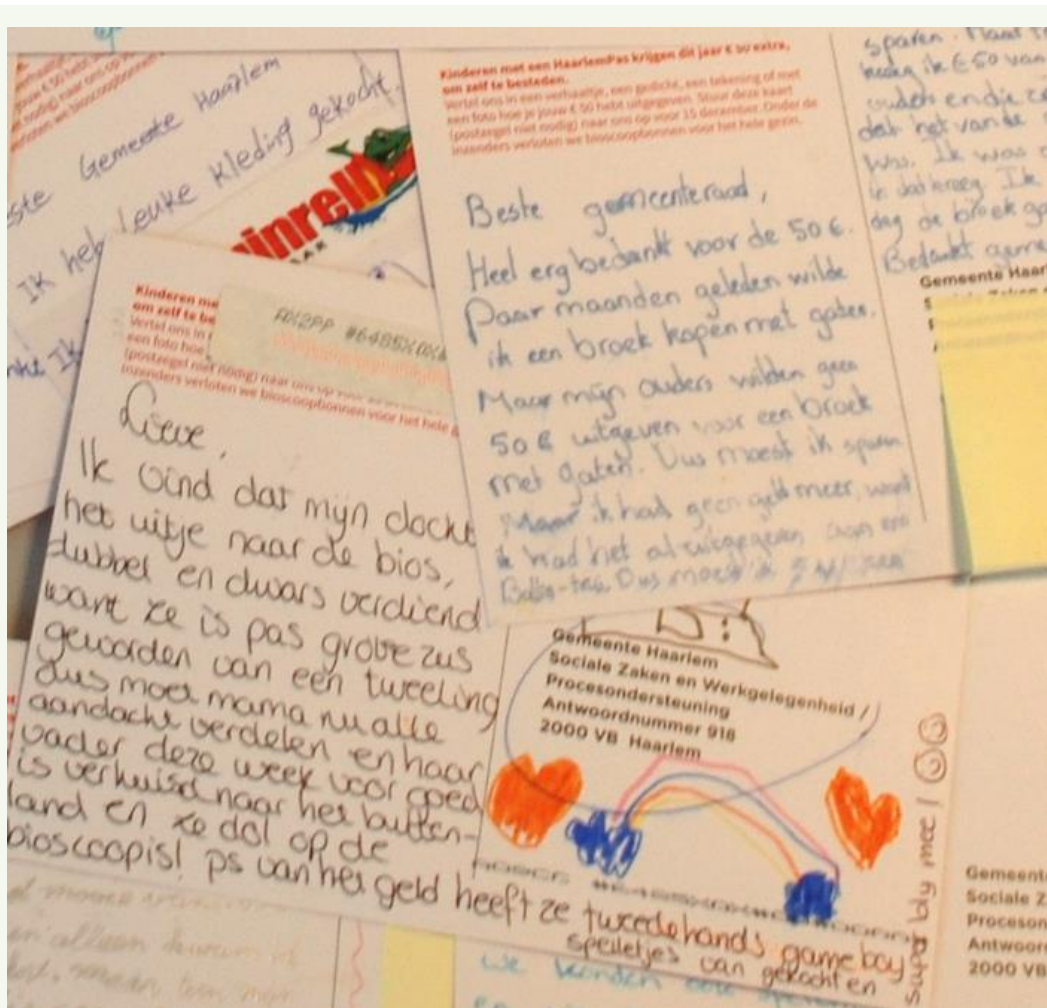 Beste Gemeente Haarlem
Ik heb leuke kleding gekocht.
Kinderen met een HaarlemPas krijgen dit jaar € 50 extra,
om zelf te besteden.
Vertel ons in een verhaaltje, een gedicht, een tekening of met
een foto hoe je jouw € 50 hebt uitgegeven. Stuur deze kaart
(postzegel niet nodig) naar ons op voor 15 december. Onder de
inzenders verloten we bioscoopbonnen voor het hele gezin.
Beste gemeenteraad,
Heel erg bedankt voor de 50 €.
Paar maanden geleden wilde
ik een broek kopen met gaten.
Maar mijn ouders wilden geen
50 € uitgeven voor een broek
met gaten. Dus moest ik sparen
Maar ik had geen geld meer, want
ik had het al uitgegeven aan een
Dus moest ik
sparen. Maar
kreeg ik € 50 van
ouders en die
dat het van de
was. Ik was
in dat kreeg. Ik
dag de broek
Bedankt
Gemeente Haar
Kinderen me
om zelf te be
Vertel ons in
een foto hoe
(postzegel niet nodig) naar ons op voor
inzenders verloten we bioscoopbonnen voor het hele
Lieve,
Ik vind dat mijn docht
het uitje naar de bios,
dubbel en dwars verdiend
want ze is pas grote zus
geworden van een tweeling
dus moet mama nu alle
aandacht verdelen en haar
vader deze week voor goed
is verhuisd naar het buiten-
land en ze dol op de
bioscoop is! ps van het geld heeft ze tweedehands gameboy
spelletjes van gekocht en
super blij mee!
Gemeente Haarlem
Sociale Zaken en Werkgelegenheid /
Procesondersteuning
Antwoordnummer 918
2000 VB Haarlem
Gemeent
Sociale Z
Proceson
Antwoor
2000 VB